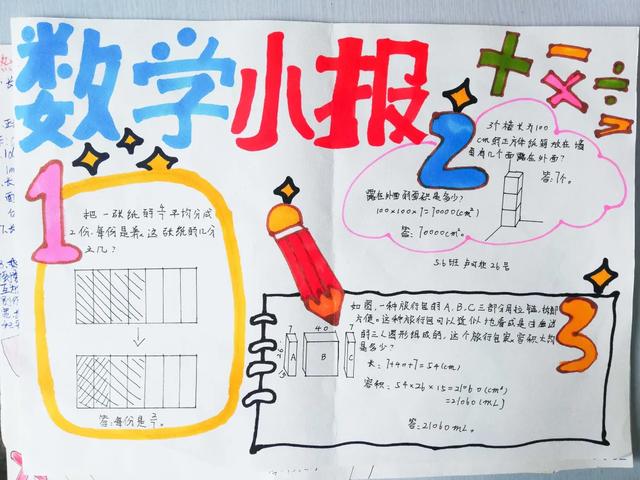 数学小报
+ − × ÷
1
把一张纸的4/7平均分成
2份,每份是这张纸的几分
之几?
答:每份是2/7。
2
3个棱长为100
cm的正方体纸箱放在墙
角有几个面露在外面?
答:7个。
露在外面的面积是多少?
100×100×7=70000(cm²)
答:70000cm²。
5.6班
26号
3
如图,一种旅行包的A、B、C三部分用拉链
方便。这种旅行包可以近似地看成是由
的三个图形组成的,这个旅行包
是多少?
7 40 7
A B
长:7+40+7=54(cm)
容积:54×26×15=21060(cm³)
=21060(mL)
答:21060mL。